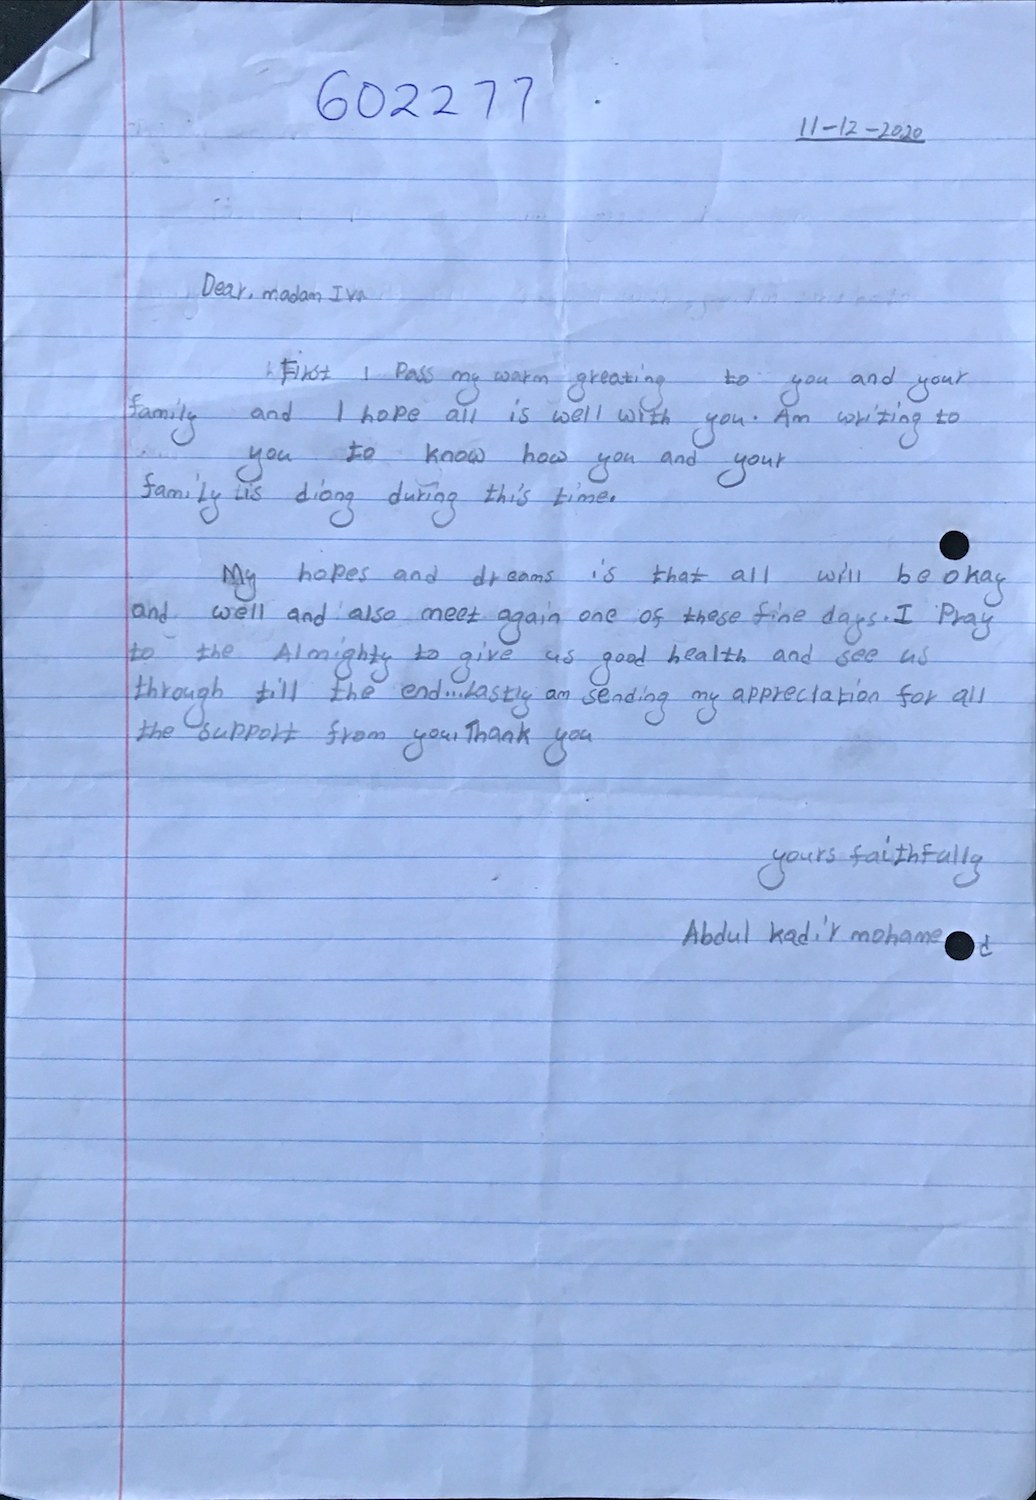 602277
11-12-2020
Dear, madam Iva
First I Pass my warm greating to you and your
family and I hope all is well with you. Am writing to
you to know how you and your
family is diong during this time.
My hopes and dreams is that all will be okay
and well and also meet again one of these fine days. I Pray
to the Almighty to give us good health and see us
through till the end...Lastly am sending my appreciation for all
the support from you. Thank you
yours faithfully
Abdul kadir mohamed